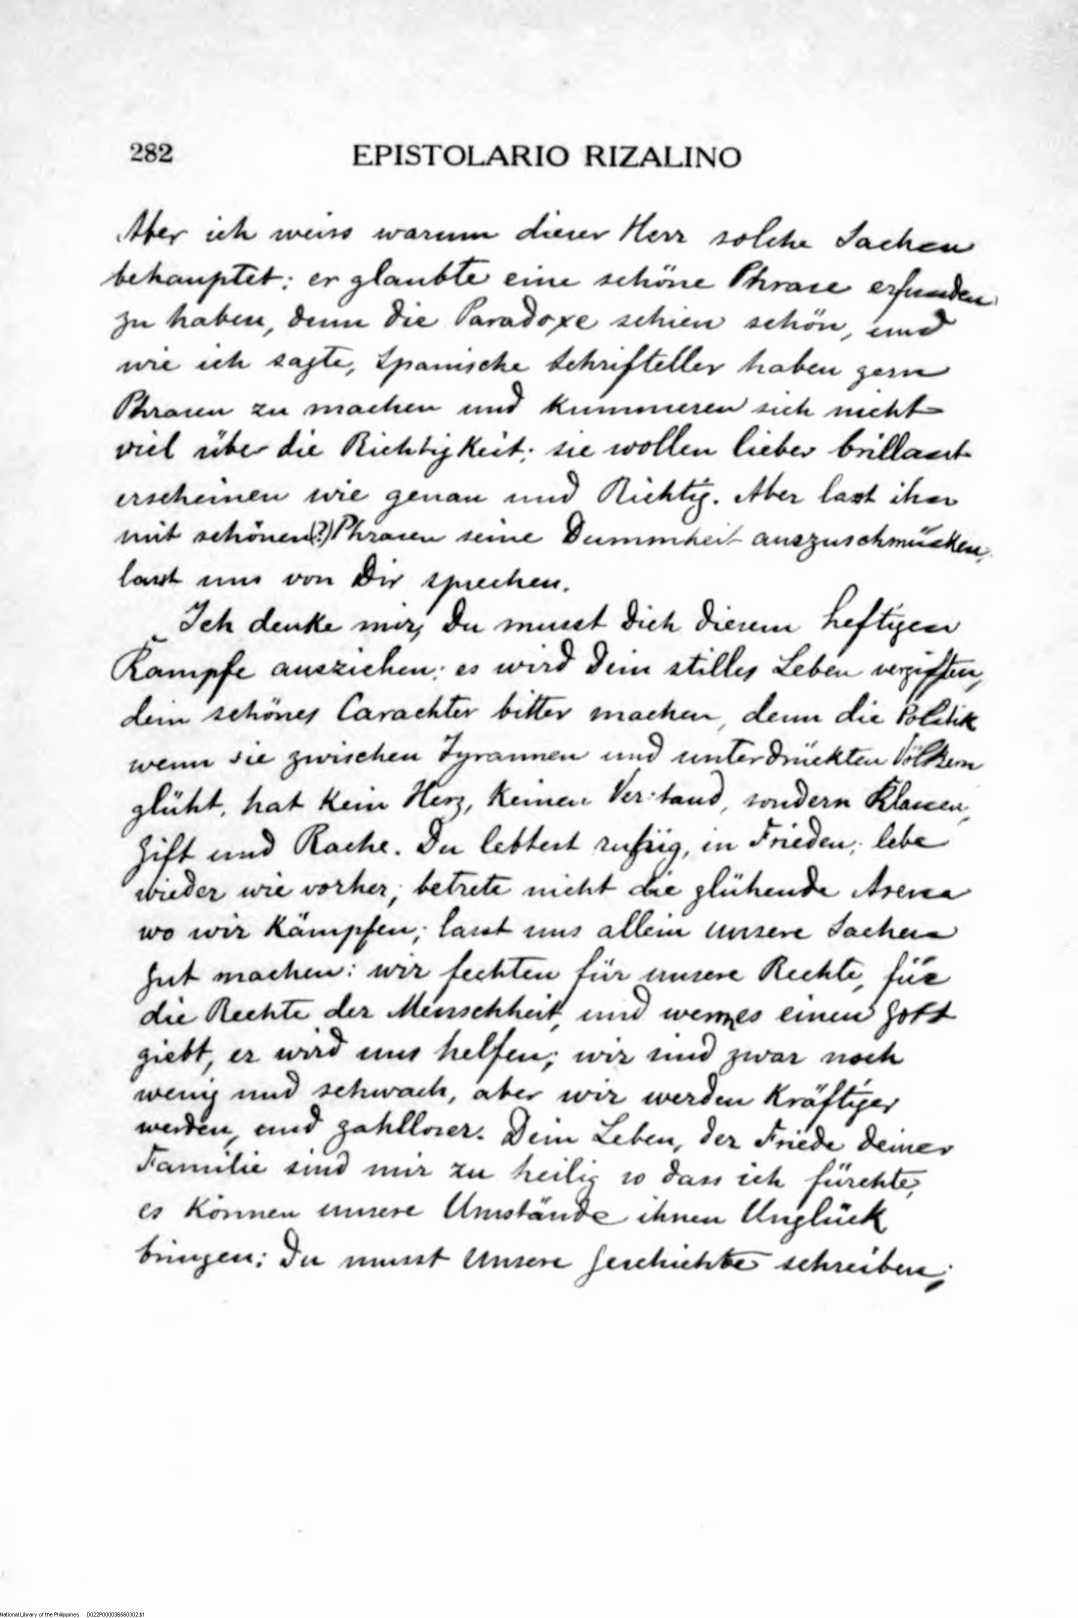 282 EPISTOLARIO RIZALINO
Aber ich weiss warum dieser Herr solche Sachen
behauptet: er glaubte eine schöne Phrase erfunden
zu haben, denn die Paradoxe schien schön, und
wie ich sagte, Spanische Schrifteller haben gern
Phrasen zu machen und kummeren sich nicht
viel über die Richtigkeit; sie wollen lieber brillant
erscheinen wie genau und Richtig. Aber last ihn
mit schönen(?) Phrasen seine Dummheit auszuschmücken,
lasst uns von Dir sprechen.
Ich denke mir, Du musst Dich diesem heftigen
Kampfe ausziehen; es wird Dein stilles Leben vergiften,
dein schönes Carachter bitter machen, denn die Politik
wenn sie zwischen Tyrannen und unterdrückten Völkern
glüht, hat kein Herz, keinen Verstand, sondern Klauen,
Gift und Rache. Du lebtest ruhig, in Frieden; lebe
wieder wie vorher; betrete nicht die glühende Arena
wo wir kämpfen; lasst uns allein unsere Sachen
gut machen: wir fechten für unsere Rechte, für
die Rechte der Menschheit, und wenn es einen Gott
giebt, er wird uns helfen; wir sind zwar noch
wenig und schwach, aber wir werden kräftiger
werden, und zahlloser. Dein Leben, der Friede deiner
Familie sind mir zu heilig so dass ich fürchte,
es können unsere Umstände ihnen Unglück
bringen: Du musst unsere Geschichte schreiben;
National Library of the Philippines